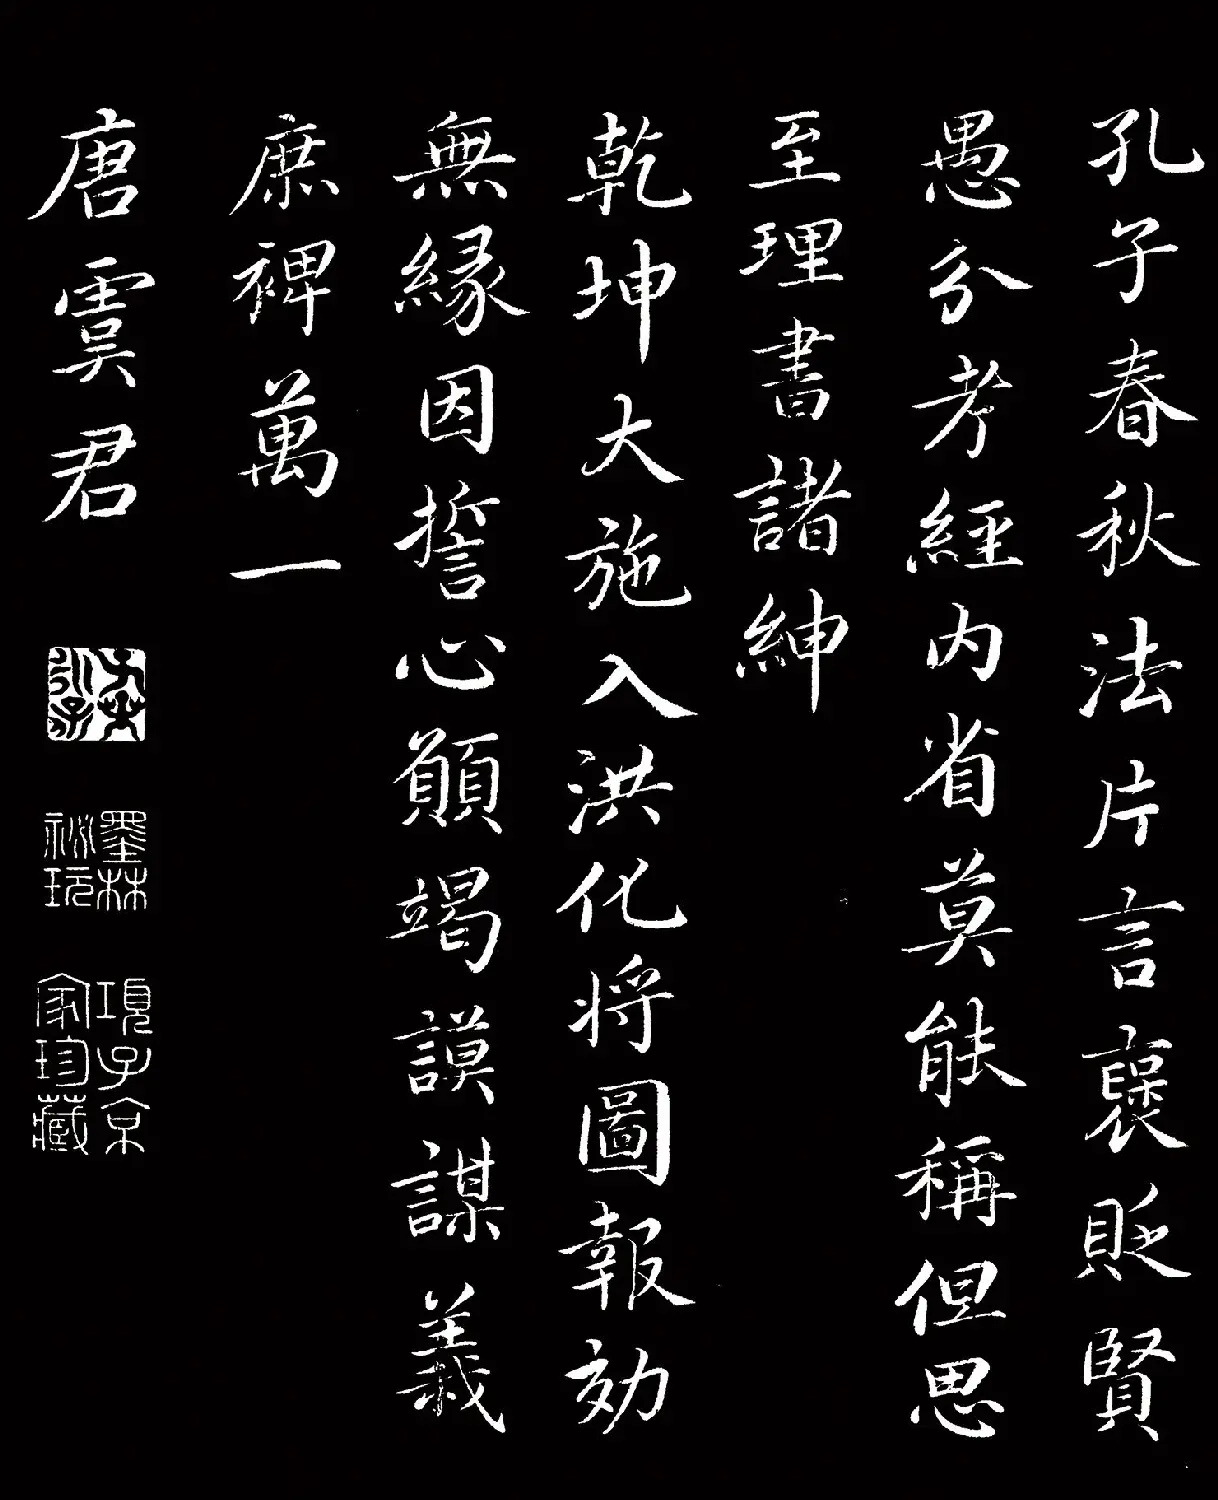 孔子春秋法片言襃貶賢
愚分考經内省莫能稱但思
至理書諸紳
乾坤大施入洪化將圖報効
無縁因誓心願竭謨謀義
庶裨萬一
唐虞君
墨林
祕玩
項子京
家珍藏